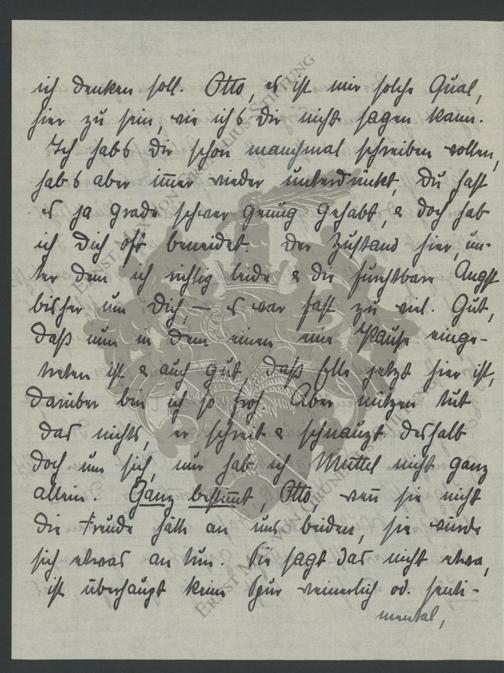 ich denken soll. Otto, es ist mir solche Qual,
hier zu sein, wie ich's Dir nicht sagen kann.
Ich hab's Dir schon manchmal schreiben wollen,
hab's aber im̄er wieder unterdrückt, Du hast
es ja grade schwer genug gehabt, & doch hab
ich Dich oft beneidet. Der Zustand hier, un-
ter dem ich richtig leide & die furchtbare Angst
bisher um Dich, – es war fast zu viel. Gut,
daß nun in dem einen eine Pause einge-
treten ist & auch gut, daß Elle jetzt hier ist,
darüber bin ich so froh. Aber nützen tut
das nichts, er schreit & schnauzt deshalb
doch um sich, nur hab ich Mutter nicht ganz
allein. Ganz bestim̄t, Otto, wen̄ sie nicht
die Freude hätte an uns beiden, sie würde
sich etwas an tun. Sie sagt das nicht etwa,
ist überhaupt keine Spur weinerlich od. senti-
mental,
ERNST MAX VON GRÜNELIUS-STIFTUNG
ERNST MAX VON GRÜNELIUS-STIFTUNG